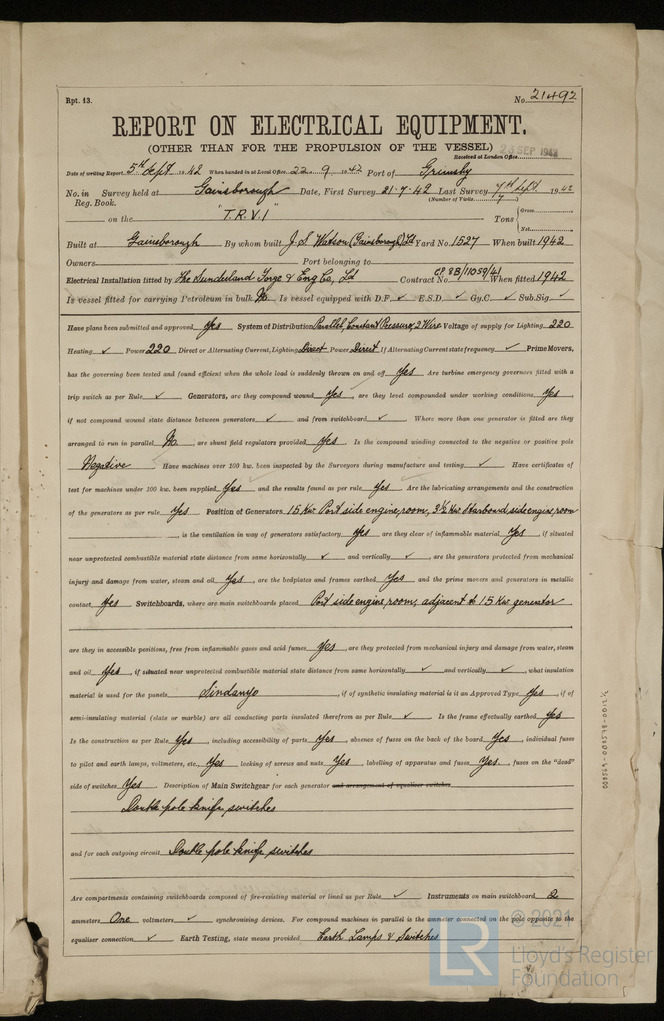 Rpt. 13. No. 21492
REPORT ON ELECTRICAL EQUIPMENT.
(OTHER THAN FOR THE PROPULSION OF THE VESSEL)
Received at London Office 25 SEP 1942
Date of writing Report 5th Sept. 1942 When handed in at Local Office 22. 9. 1942 Port of Grimsby
No. in Survey held at Gainsborough Date, First Survey 21-7-42 Last Survey 7th Sept. 1942
Reg. Book. (Number of Visits 7)
on the "T.R.V.1" Tons { Gross
Net
Built at Gainsborough By whom built J. S. Watson (Gainsborough) Ltd Yard No. 1527 When built 1942
Owners Port belonging to
Electrical Installation fitted by The Sunderland Forge & Eng Co, Ld Contract No. CP.8B/11059/41 When fitted 1942
Is vessel fitted for carrying Petroleum in bulk No Is vessel equipped with D.F. ✓ E.S.D. ✓ Gy.C. ✓ Sub.Sig. ✓
Have plans been submitted and approved Yes System of Distribution Parallel, Constant Pressure, 2 Wire Voltage of supply for Lighting 220
Heating ✓ Power 220 Direct or Alternating Current, Lighting Direct Power Direct If Alternating Current state frequency ✓ Prime Movers,
has the governing been tested and found efficient when the whole load is suddenly thrown on and off Yes Are turbine emergency governors fitted with a
trip switch as per Rule ✓ Generators, are they compound wound Yes, are they level compounded under working conditions Yes,
if not compound wound state distance between generators ✓ and from switchboard ✓ Where more than one generator is fitted are they
arranged to run in parallel No, are shunt field regulators provided Yes Is the compound winding connected to the negative or positive pole
Negative Have machines over 100 kw. been inspected by the Surveyors during manufacture and testing ✓ Have certificates of
test for machines under 100 kw. been supplied Yes and the results found as per rule Yes Are the lubricating arrangements and the construction
of the generators as per rule Yes Position of Generators 15 Kw Port side engine room, 3½ Kw Starboard side engine room
, is the ventilation in way of generators satisfactory Yes are they clear of inflammable material Yes, if situated
near unprotected combustible material state distance from same horizontally ✓ and vertically ✓, are the generators protected from mechanical
injury and damage from water, steam and oil Yes, are the bedplates and frames earthed Yes and the prime movers and generators in metallic
contact Yes Switchboards, where are main switchboards placed Port side engine room, adjacent to 15 Kw generator
are they in accessible positions, free from inflammable gases and acid fumes Yes, are they protected from mechanical injury and damage from water, steam
and oil Yes, if situated near unprotected combustible material state distance from same horizontally ✓ and vertically ✓, what insulation
material is used for the panels Sindanyo, if of synthetic insulating material is it an Approved Type Yes, if of
semi-insulating material (slate or marble) are all conducting parts insulated therefrom as per Rule ✓ Is the frame effectually earthed Yes
Is the construction as per Rule Yes, including accessibility of parts Yes, absence of fuses on the back of the board Yes, individual fuses
to pilot and earth lamps, voltmeters, etc., Yes locking of screws and nuts Yes, labelling of apparatus and fuses Yes, fuses on the "dead"
side of switches Yes Description of Main Switchgear for each generator and arrangement of equaliser switches
Double pole knife switches
and for each outgoing circuit Double pole knife switches
Are compartments containing switchboards composed of fire-resisting material or lined as per Rule ✓ Instruments on main switchboard 2
ammeters One voltmeters ✓ synchronising devices. For compound machines in parallel is the ammeter connected on the pole opposite to the
equaliser connection ✓ Earth Testing, state means provided Earth Lamps & Switches
© 2021
LR
Lloyd's Register
Foundation